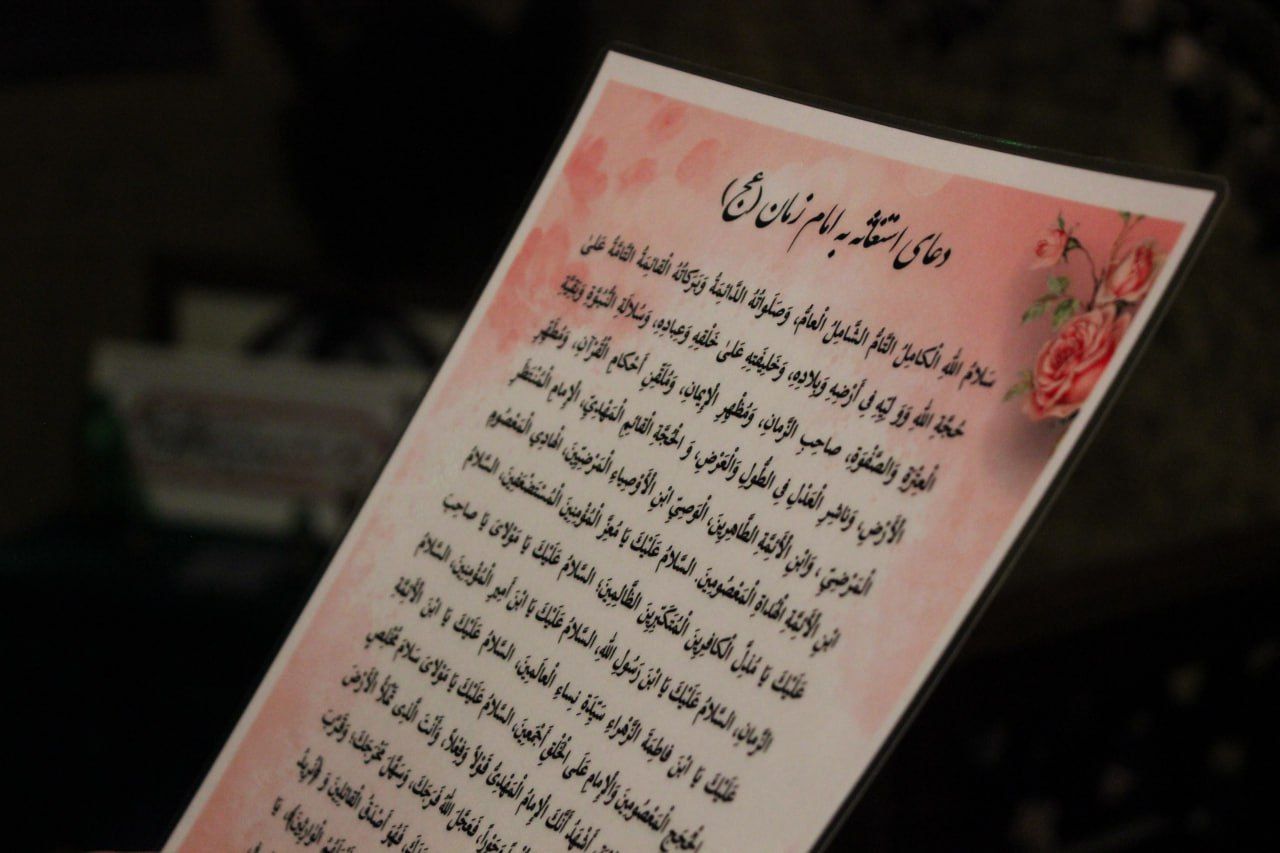 دعای استغاثه به امام زمان (عج)
سَلامُ اللهِ الْكامِلُ التَّامُّ الشَّامِلُ الْعامُّ، وَصَلَواتُهُ الدَّائِمَةُ وَبَرَكاتُهُ الْقائِمَةُ التَّامَّةُ عَلىٰ
حُجَّةِ اللهِ وَوَلِيِّهِ فِي أَرْضِهِ وَبِلادِهِ، وَخَلِيفَتِهِ عَلىٰ خَلْقِهِ وَعِبادِهِ، وَسُلالَةِ النُّبُوَّةِ وَبَقِيَّةِ
الْعِتْرَةِ وَالصَّفْوَةِ، صاحِبِ الزَّمانِ، وَمُظْهِرِ الْإِيمانِ، وَمُلَقِّنِ أَحْكامِ الْقُرْآنِ، وَمُطَهِّرِ
الْأَرْضِ، وَناشِرِ الْعَدْلِ فِي الطُّولِ وَالْعَرْضِ، وَالْحُجَّةِ الْقائِمِ الْمَهْدِيِّ، الْإِمامِ الْمُنْتَظَرِ
الْمَرْضِيِّ، وَابْنِ الْأَئِمَّةِ الطَّاهِرِينَ، الْوَصِيِّ ابْنِ الْأَوْصِياءِ الْمَرْضِيِّينَ، الْهادِي الْمَعْصُومِ
ابْنِ الْأَئِمَّةِ الْهُداةِ الْمَعْصُومِينَ. السَّلامُ عَلَيْكَ يَا مُعِزَّ الْمُؤْمِنِينَ الْمُسْتَضْعَفِينَ، السَّلامُ
عَلَيْكَ يَا مُذِلَّ الْكافِرِينَ الْمُتَكَبِّرِينَ الظَّالِمِينَ، السَّلامُ عَلَيْكَ يَا مَوْلايَ يَا صاحِبَ
الزَّمانِ، السَّلامُ عَلَيْكَ يَا ابْنَ رَسُولِ اللهِ، السَّلامُ عَلَيْكَ يَا ابْنَ أَمِيرِ الْمُؤْمِنِينَ، السَّلامُ
عَلَيْكَ يَا ابْنَ فاطِمَةَ الزَّهْراءِ سَيِّدَةِ نِساءِ الْعالَمِينَ، السَّلامُ عَلَيْكَ يَا ابْنَ الْأَئِمَّةِ
الْحُجَجِ الْمَعْصُومِينَ وَالْإِمامِ عَلَى الْخَلْقِ أَجْمَعِينَ، السَّلامُ عَلَيْكَ يَا مَوْلايَ سَلامَ مُخْلِصٍ
أَشْهَدُ أَنَّكَ الْإِمامُ الْمَهْدِيُّ قَوْلاً وَفِعْلاً، وَأَنْتَ الَّذِی تَمْلَأُ الْأَرْضَ
وَجَوْراً، فَعَجَّلَ اللهُ فَرَجَكَ، وَسَهَّلَ مَخْرَجَكَ، وَقَرَّبَ
فَهُوَ أَصْدَقُ الْقائِلِينَ وَ ﴿نُرِيدُ
الْوارِثِينَ﴾، يَا